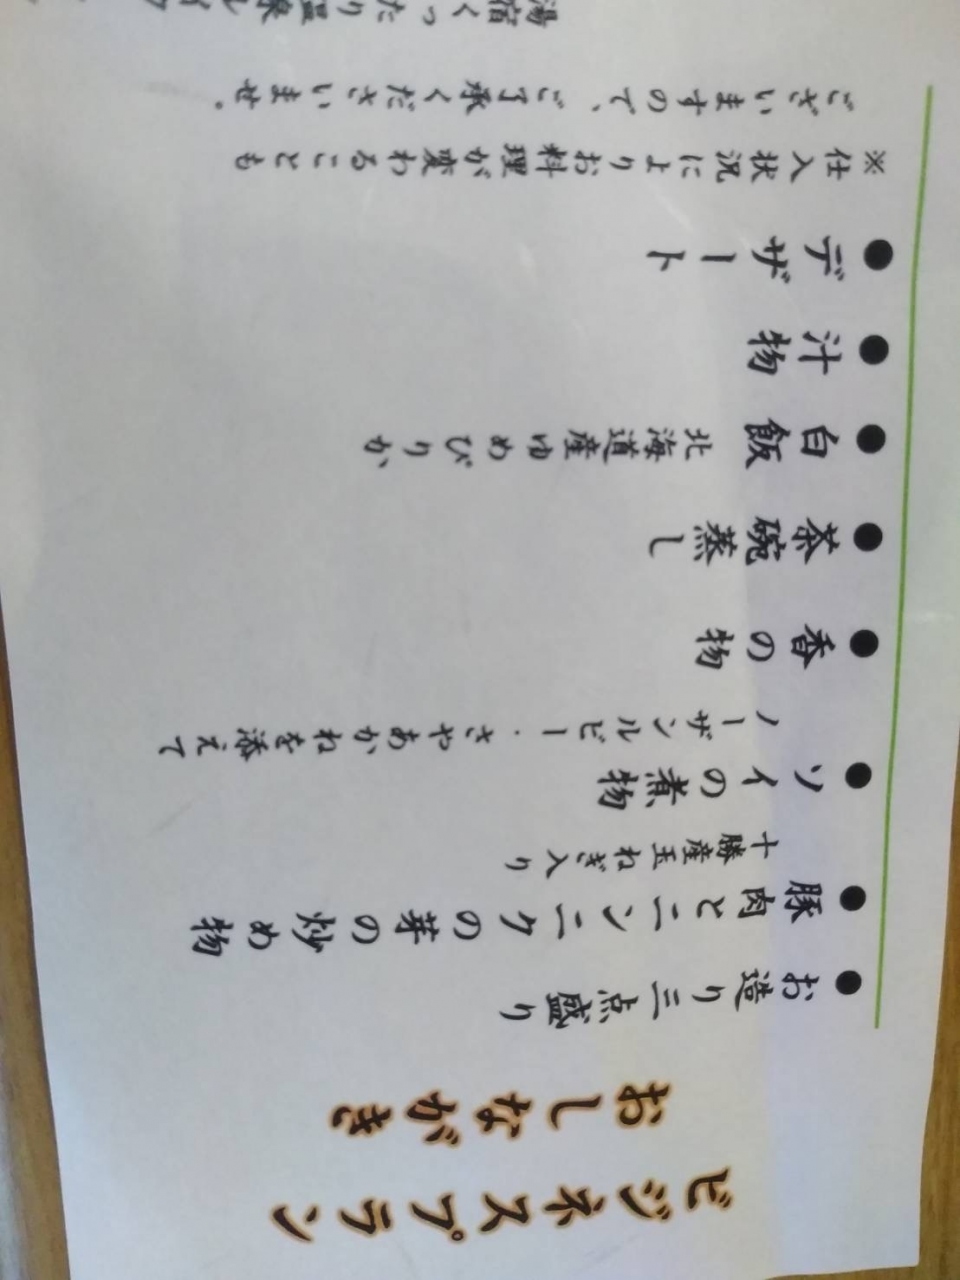 ビジネスプラン
おしながき
●お造り三点盛り
●豚肉とニンニクの芽の炒め物
十勝産玉ねぎ入り
●ソイの煮物
ノーザンルビー・さやあかねを添えて
●香の物
●茶碗蒸し
●白飯 北海道産ゆめぴりか
●汁物
●デザート
※仕入状況によりお料理が変わることも
ございますので、ご了承くださいませ。
湯宿くったり温泉レイク